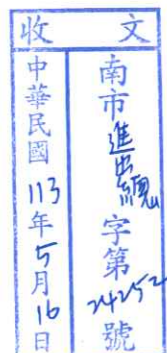 收文
南市進出總字第24252號
中華民國113年5月16日